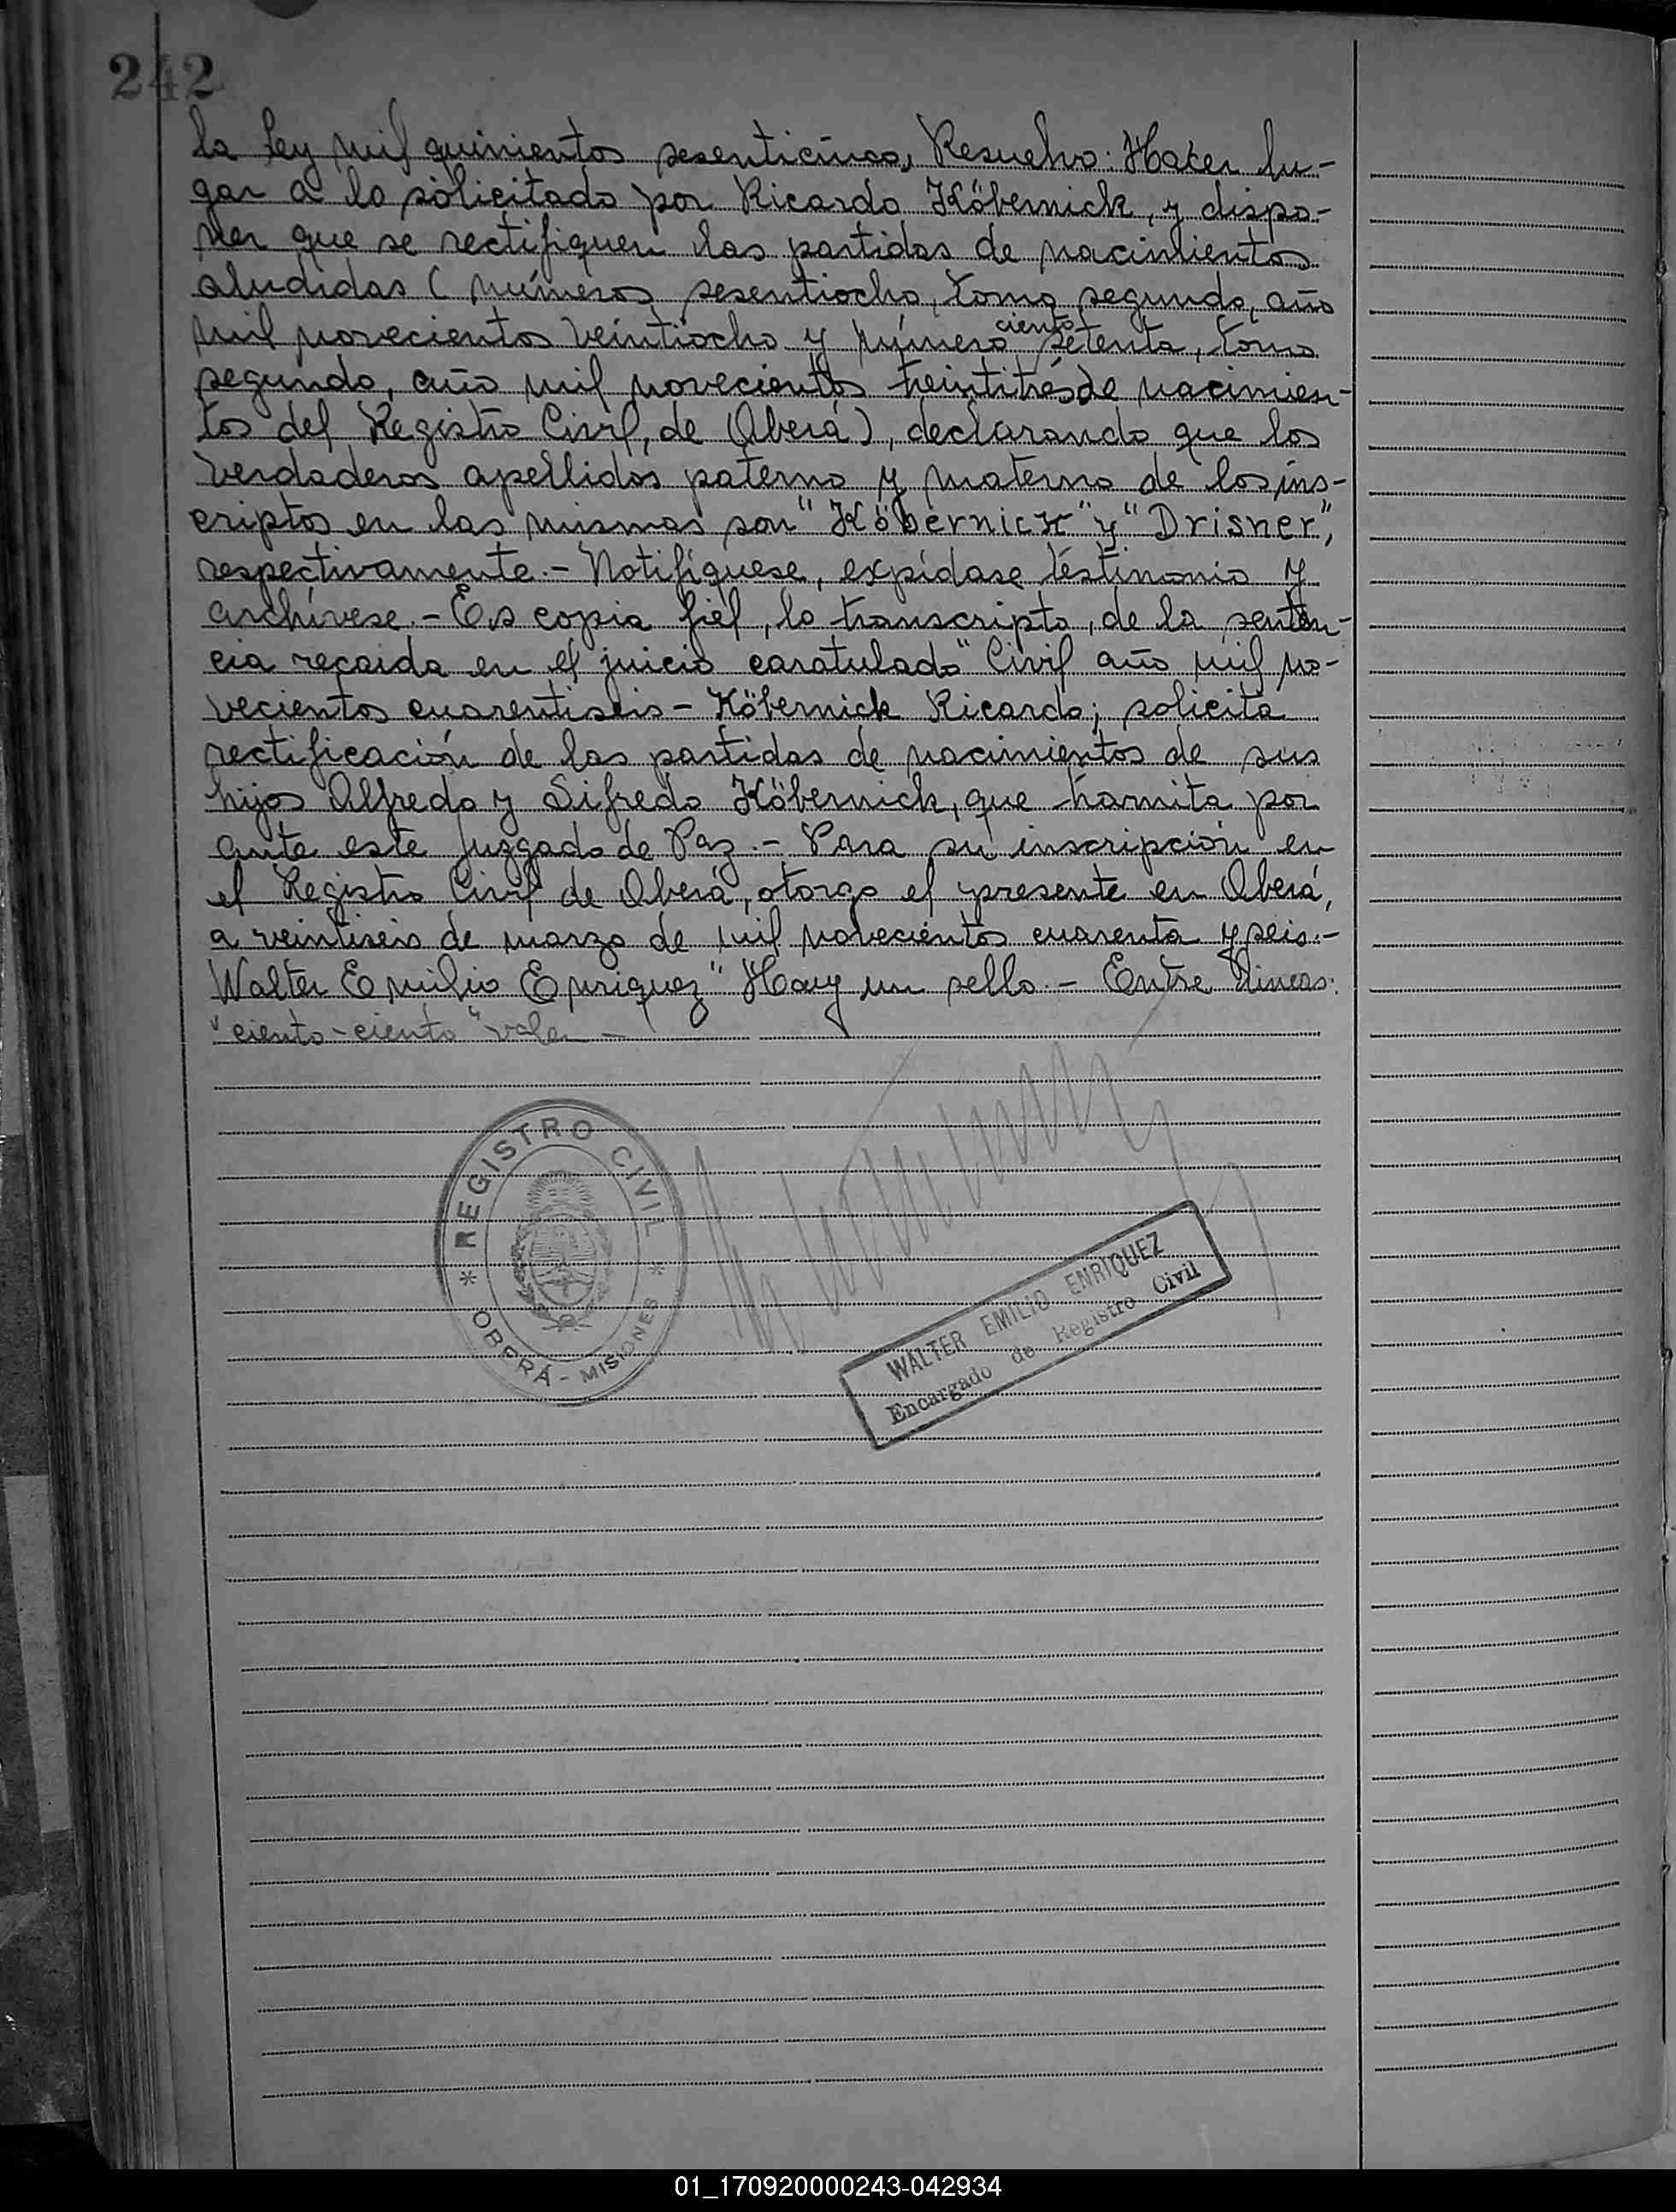 242
la ley mil quinientos sesenticinco, Resuelvo: Hacer lu-
gar a lo solicitado por Ricardo Köbernick, y dispo-
ner que se rectifiquen las partidas de nacimientos
aludidas ( números sesentiocho, tomo segundo, año
mil novecientos veintiocho y número ciento setenta, tomo
segundo, año mil novecientos treintitrés de nacimien-
tos del Registro Civil, de Oberá), declarando que los
verdaderos apellidos paterno y materno de los ins-
criptos en las mismas son "Köbernick" y "Drisner",
respectivamente.- Notifíquese, expídase testimonio y
archívese.- Es copia fiel, lo transcripto, de la senten-
cia recaída en el juicio caratulado "Civil año mil no-
vecientos cuarentiseis - Köbernick Ricardo; solicita
rectificación de las partidas de nacimientos de sus
hijos Alfredo y Sifredo Köbernick, que tramita por
ante este Juzgado de Paz.- Para su inscripción en
el Registro Civil de Oberá, otorgo el presente en Oberá,
a veintiseis de marzo de mil novecientos cuarenta y seis.-
Walter Emilio Enriquez" Hay un sello.- Entre líneas:
"ciento-ciento" valen -
REGISTRO CIVIL
* OBERÁ - MISIONES *
WALTER EMILIO ENRIQUEZ
Encargado de Registro Civil
01_170920000243-042934